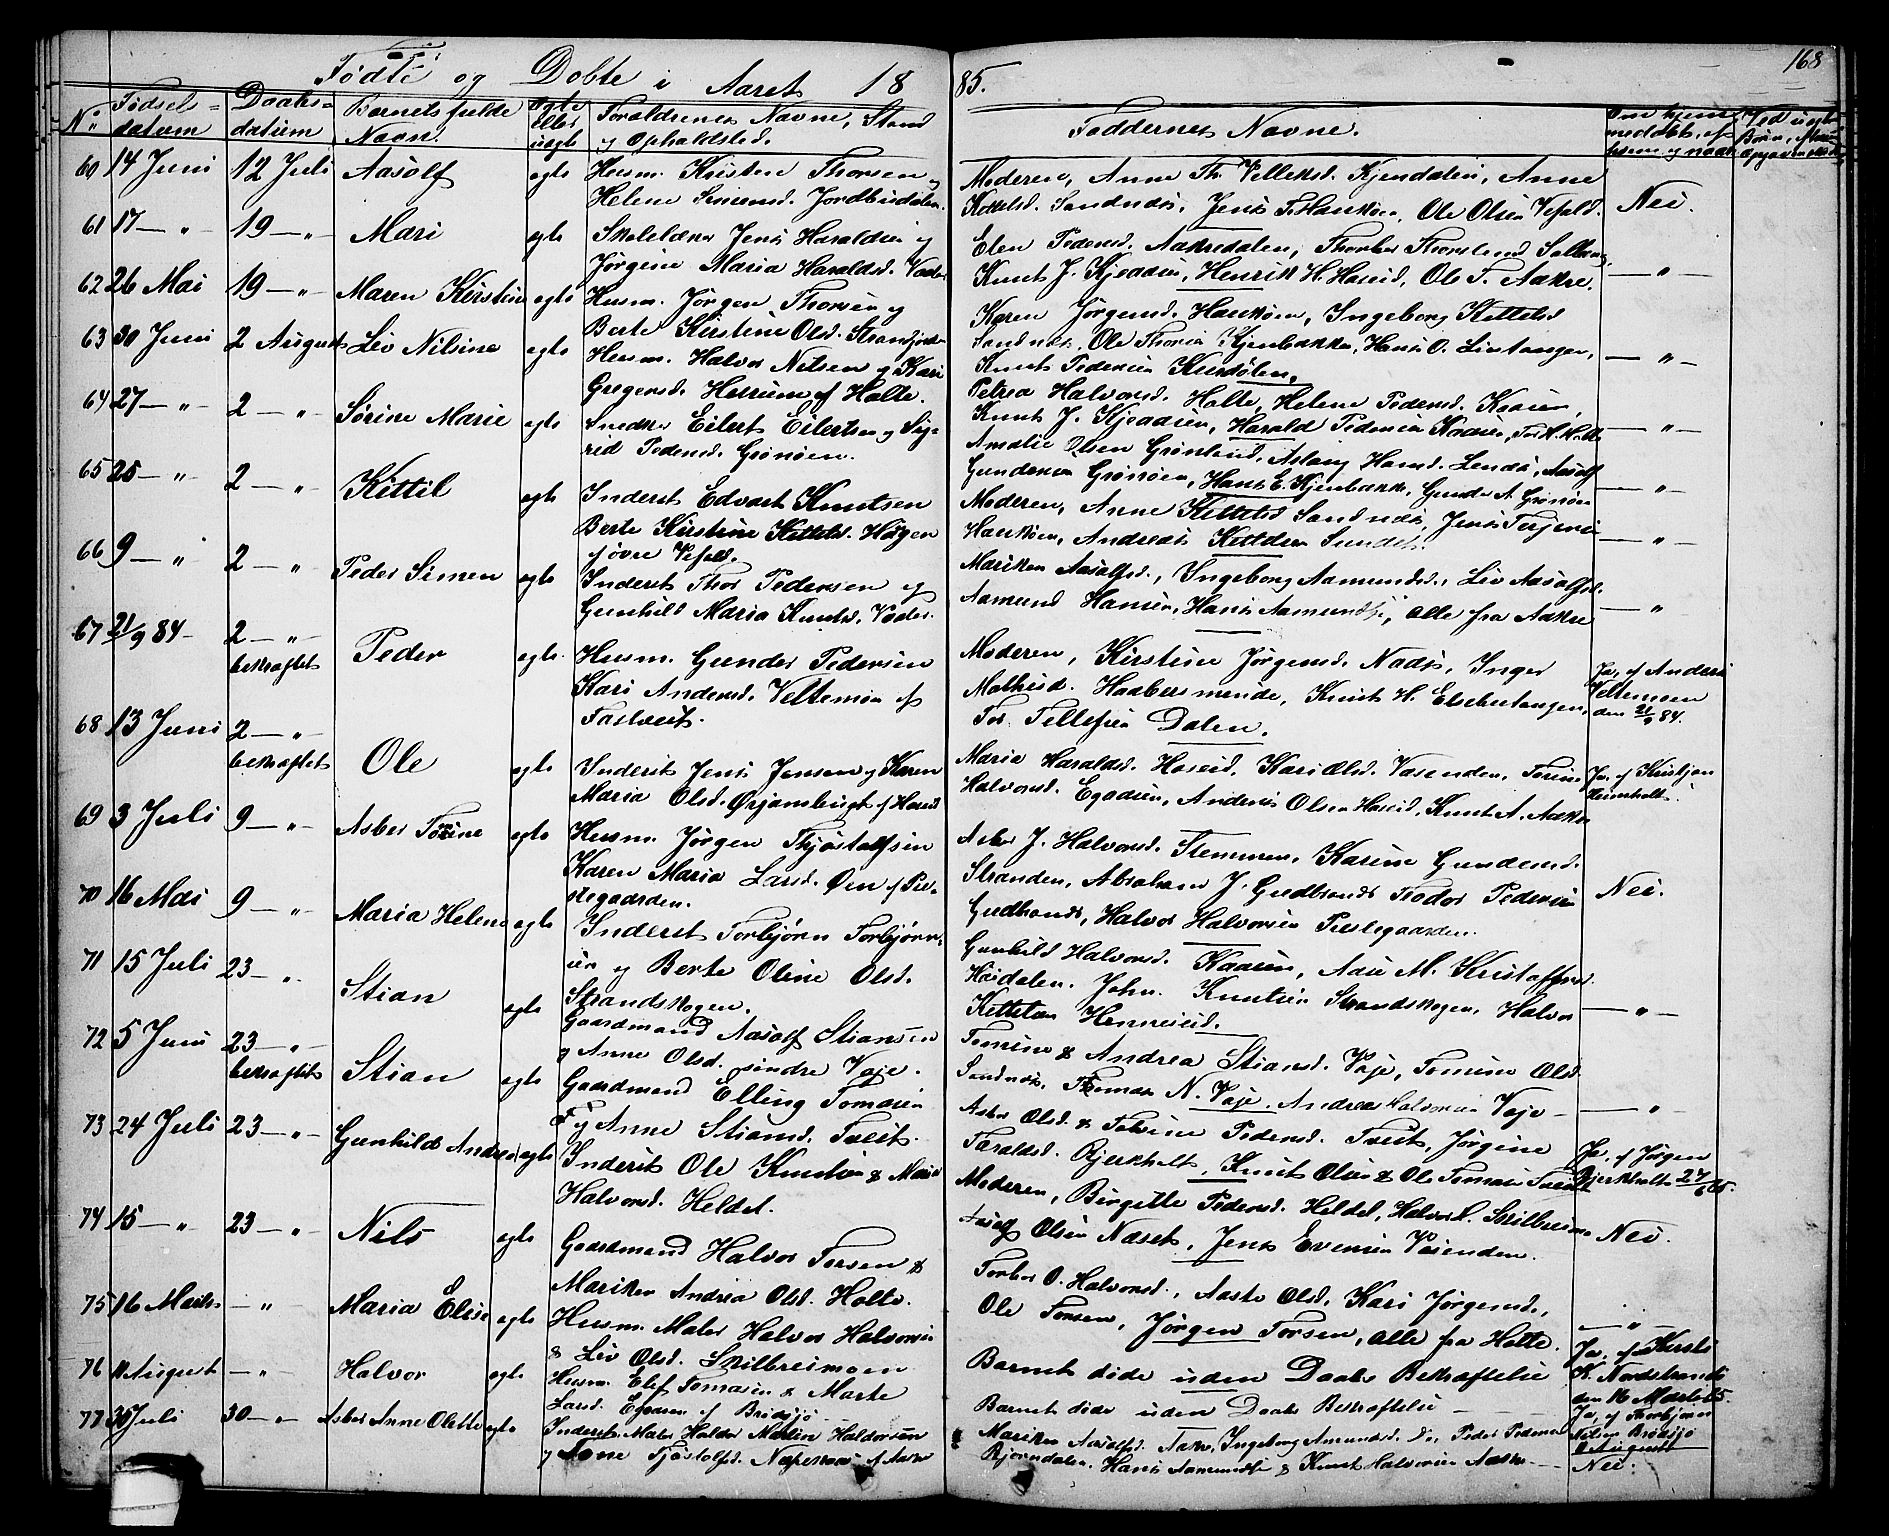 Fødte og Døbte i Aaret 1885.
168
No
Fødsels-
datum
Daabs-
datum
Barnets fulde
Navn.
Ægte
eller
uægte
Forældrenes Navne, Stand
og Opholdsted.
Faddernes Navne.
60 14 Juni 12 Juli Aasolf ægte Husm. Kristen Thorsen og
Helene Simensd. Jordbudalen.
Moderen, Anne Th. Velleksd. Kjendalen, Anne
Kettelsd. Sandnæs, Jens T. Haukøen, Ole Olsen Vefald.
Nei.
61 17 — " 19 — " Mari ægte Skolelærer Jens Haraldsen og
Jørgine Maria Haraldsd.
Elen Pedersd. Aakredalen,
Knut J. Kjeaasen, Henrik H. Haseid, Ole T. Aakre.
— " —
62 26 Mai 19 — " Maren Kirstine ægte Husm. Jørgen Thorsen og
Berte Kirstine Olsd.
Karen Jørgensd. Haukøen, Ingeborg Kettelsd
Sandnæs, Ole Thorsen Kjenbakken, Hans O. Lintangen,
Knut Pedersen
— " —
63 30 Juni 2 August Liv Nilsine ægte Husm. Halvor Nilsen og Kari
Gregersd. Hesrume af Holte.
Petrea Halvorsd. Holte, Helene Pedersd. Kaasen,
Knut J. Kjeaasen, Harald Pedersen Kaasen,
— " —
64 27 — " 2 — " Sørine Marie ægte Snedker Eilert Eilertsen og Sig-
rid Pedersd. Grønøen.
Amalie Olsen Grønlund, Aslaug Hansd. Aasolf
Gundersen Grønøen, Hans E. Kjenbakk, Gunder A. Grønøen
— " —
65 25 — " 2 — " Kittil ægte Inderst Edvart Knutsen
Berte Kirstine Kettelsd. Haugen
øvre Vefald.
Moderen, Anne Kettelsd Sandnæs, Jens Terjesen
Haukøen, Andreas Kettelsen Sundet.
— " —
66 9 — " 2 — " Peder Simen ægte Inderst Thor Pedersen og
Gunhild Maria Knutsd.
Mariken Aasolfsd., Ingeborg Aamundsd., Liv Aasolfsd.
Aamund Hansen, Hans Aamundsen, alle fra Aakre
— " —
67 21/9 84 — 2 — "
bekræftet
Peder ægte. Husm. Gunder Pedersen
Kari Andersd. Veltemoen af
Farsveit.
Moderen, Kirstine Jørgensd. Nadøs, Inger
Mathisd. Haabersmunde, Knut H. Eseberstangen,
Tor Tellefsen Dalen.
Ja, af Anders
Veltemoen
den 21/9 84.
68 13 Juni 2 — "
bekræftet
Ole ægte Inderst Jens Jensen og Karen
Maria Olsd. Ørjansbugt af Haseid
Maria Haraldsd. Haseid, Kari Olsd. Vasenden, Torine
Halvorsd. Egaasen, Anders Olsen Haseid, Knut A. Aakre
Ja, af Kristjan
Heimholt.
69 3 Juli 9 — " Asber Torine ægte Husm. Jørgen Thjøstolfsen
Karen Maria Larsd. Øen af Pre-
stegaarden.
Asber J. Halvorsd. Stemmen, Karine Gundersd.
Stranden, Abraham J. Gudbrands Teodor Pedersen
Gudbrands, Halvor Halvorsen Prestegaarden.
Nei.
70 16 Mai 9 — " Maria Helene ægte Inderst Torbjørn Torbjørn-
sen og Berte Oline Olsd.
Strandskogen.
Gunhild Halvorsd. Kaasen, Aase M. Kristoffersd.
Høidalen, John Knutsen Strandskogen, Halvor
Kettelsen Henneseid.
— " —
71 15 Juli 23 — " Stian ægte Gaardmand Aasolf Stiansen
og Anne Olsd. søndre Vaje.
Tomine & Andrea Stiansd. Vaje, Tomine Olsd.
Sandnæs, Thomas N. Vaje, Andreas Halvorsen Vaje
— " —
72 5 Juni 23 — "
bekræftet
Stian ægte Gaardmand Elling Tomasen
og Anne Stiansd. Tveit.
Asber Olsd. & Torine Pedersd. Tveit, Jørgine
Taraldsd. Bjerkholt, Knut Olsen & Ole Tomasen Tveit
Ja, af Jørgen
Bjerkholt 27/6 85.
73 24 Juli 23 — " Gunhild Andrea ægte Inderst Ole Knutsen & Maria
Halvorsd. Heldet.
Moderen, Birgitte Pedersd. Heldet, Halvor L. Skilbreimoen
Aasolf Olsen Næset, Jens Evensen Vasenden.
Nei.
74 15 — " 23 — " Nils ægte Gaardmand Halvor Torsen &
Mariken Andrea Olsd. Holte.
Torbor O. Halvorsd., Aaste Olsd., Kari Jørgensd.,
Ole Torsen, Jørgen Torsen, alle fra Holte.
— " —
75 16 Marts — " — Maria Elise ægte Husm. Maler Halvor Halvorsen
& Liv Olsd. Skilbreimoen
Barnet døde uden Daabs Bekræftelse
Ja, af Kirsti
K. Nordstrands
den 16 Marts 85.
76 11 August — " — Halvor ægte Husm. Elef Tomasen & Marte
Larsd. Eggaasen af Brødsjø
Barnet døde uden Daabs Bekræftelse
Ja, af Thorbjørn
Nilsen Brødsjø
August
77 30 Juli 30 — " — Asber Anne Olette ægte Inderst Maler Halvor Martin Halvorsen
og Tone Tjøstolfsd. af Aakre
Mariken Aasolfsd. Aakre, Ingeborg Amundsd. Do, Peder Pedersen
Bjørndalen, Hans Aamundsen & Knut Halvorsen Aakre
Nei.